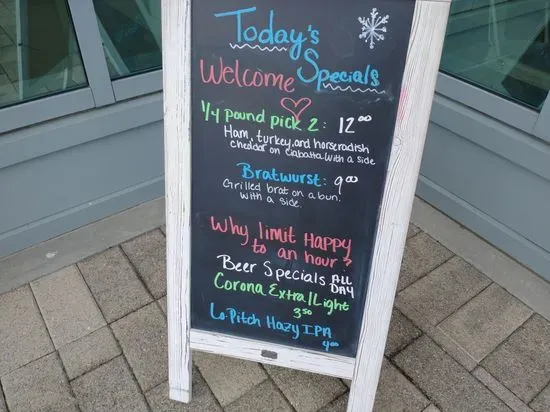 Today's
Specials
Welcome
1/4 pound pick 2: 12.00
Ham, turkey, and horseradish
cheddar on ciabatta with a side
Bratwurst: 9.00
Grilled brat on a bun.
with a side.
Why limit Happy
to an hour?
Beer Specials ALL DAY
Corona Extra/Light
3.50
Lo-Pitch Hazy IPA
4.00